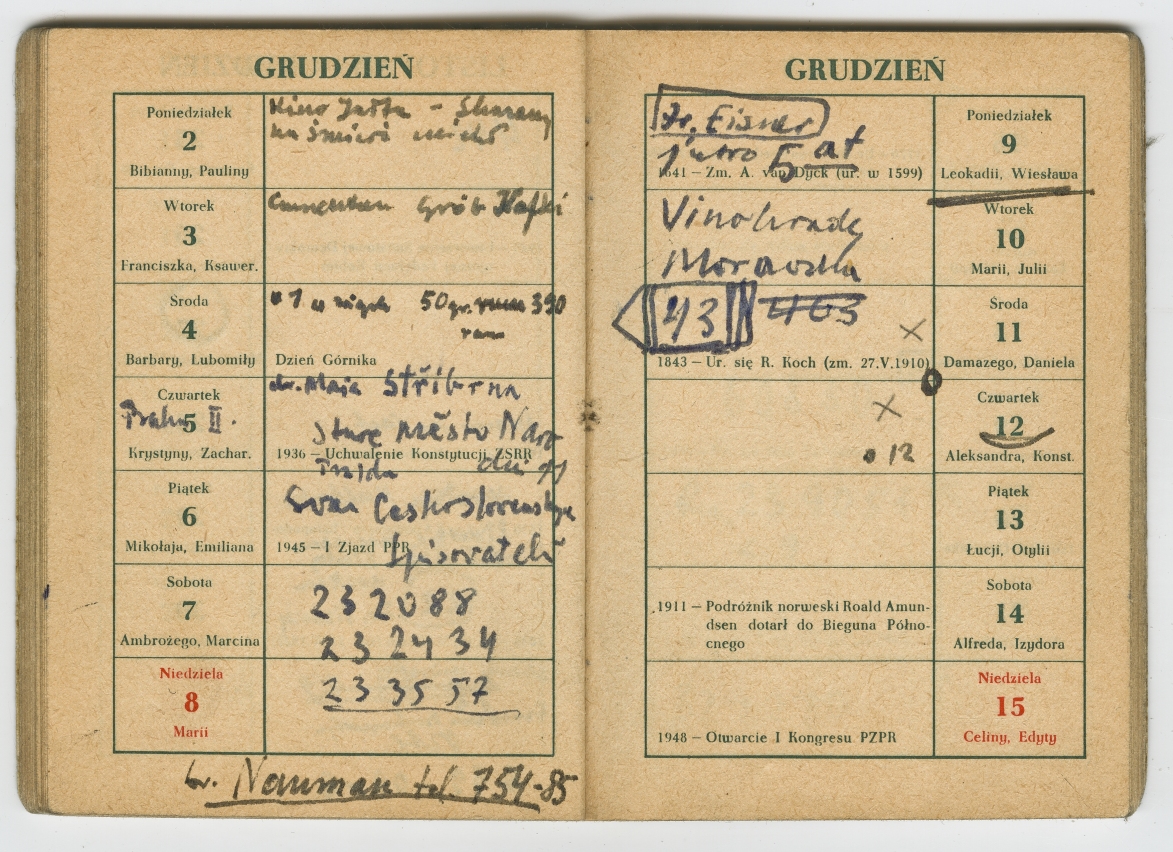 GRUDZIEŃ
Poniedziałek
2
Bibianny, Pauliny
Kino Jałta - Skazany
na śmierć
Wtorek
3
Franciszka, Ksawer.
Cmentarz Grób Kafki
Środa
4
Barbary, Lubomiły
50 gr. 390
Dzień Górnika
Czwartek
5
Krystyny, Zachar.
Praha II.
dr. Maja Stříbrna
Staré město Naro
1936 — Uchwalenie Konstytucji ZSRR
třida
Piątek
6
Mikołaja, Emiliana
Svaz Československých
1945 — I Zjazd PPR
Spisovatelů
Sobota
7
Ambrożego, Marcina
232088
232434
Niedziela
8
Marii
233557
Nauman tel. 754-85
GRUDZIEŃ
Dr. Eisner
jutro 5 at
1641 — Zm. A. van Dyck (ur. w 1599)
Poniedziałek
9
Leokadii, Wiesława
Vinohrady
Moravska
Wtorek
10
Marii, Julii
43 463
1843 — Ur. się R. Koch (zm. 27.V.1910)
Środa
11
Damazego, Daniela
Czwartek
12
Aleksandra, Konst.
12
Piątek
13
Łucji, Otylii
1911 — Podróżnik norweski Roald Amun-
dsen dotarł do Bieguna Półno-
cnego
Sobota
14
Alfreda, Izydora
1948 — Otwarcie I Kongresu PZPR
Niedziela
15
Celiny, Edyty